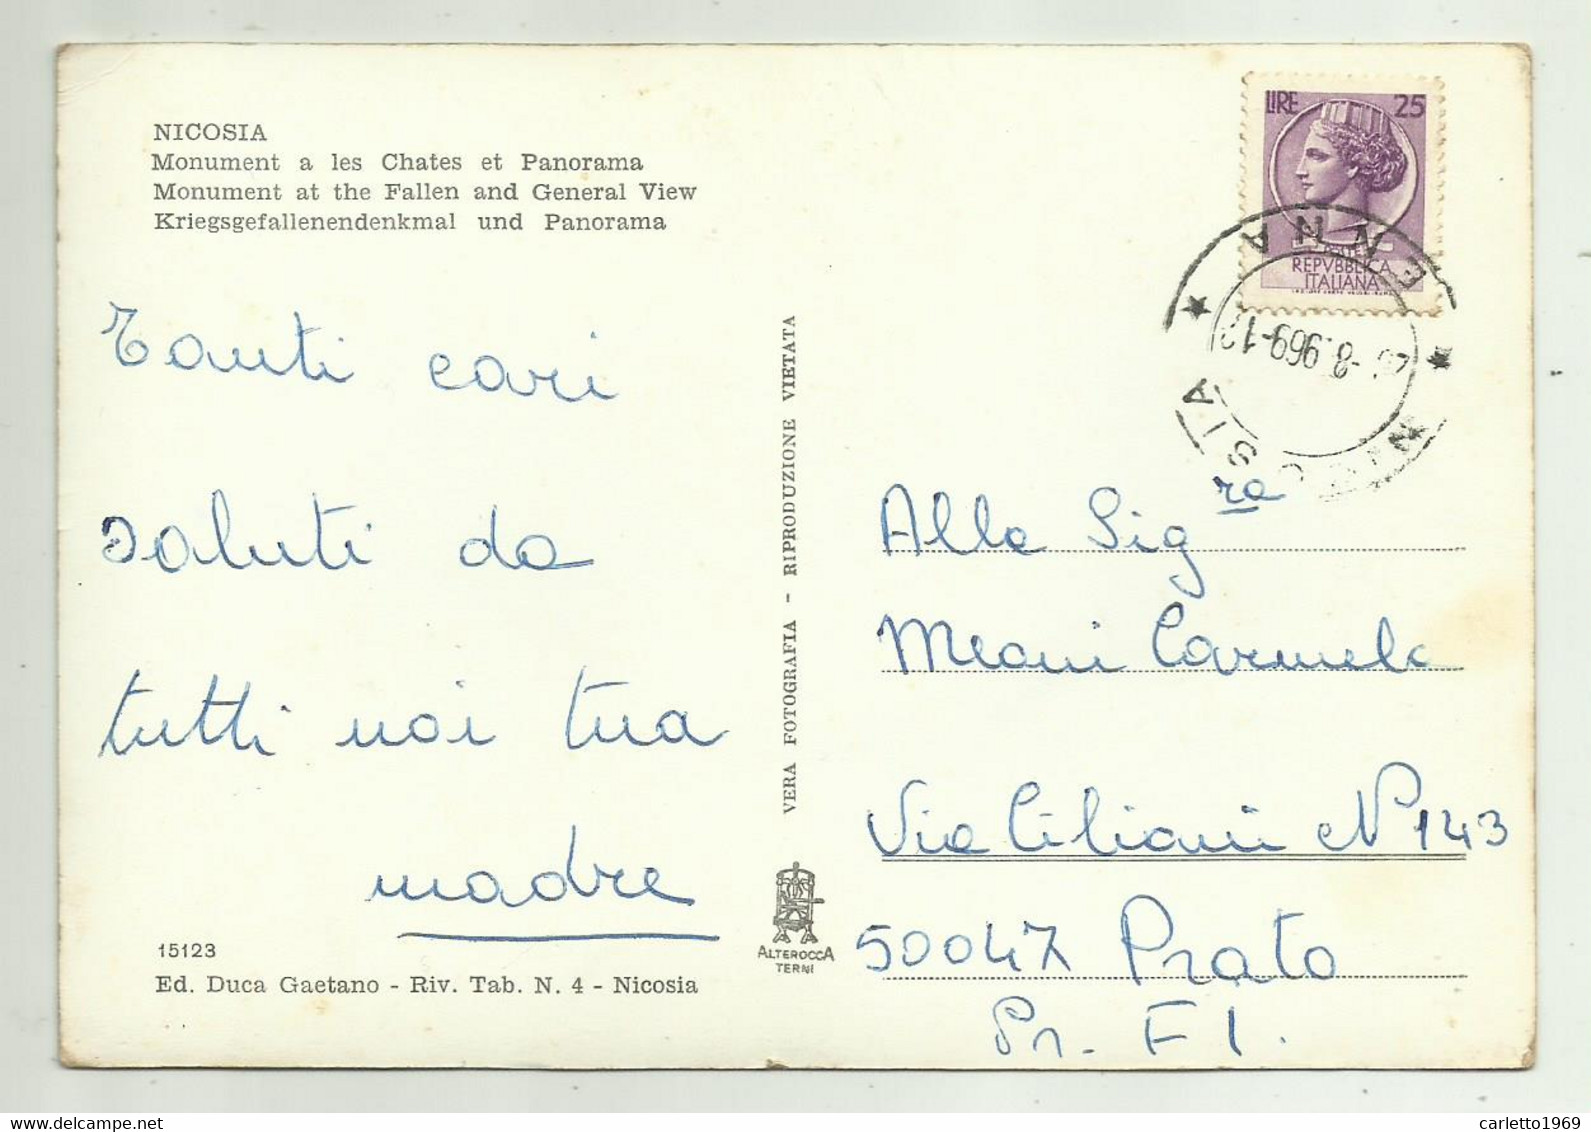 NICOSIA
Monument a les Chates et Panorama
Monument at the Fallen and General View
Kriegsgefallenendenkmal und Panorama
Tanti cari
saluti da
tutti noi tua
madre
15123
Ed. Duca Gaetano - Riv. Tab. N. 4 - Nicosia
VERA FOTOGRAFIA - RIPRODUZIONE VIETATA
ALTEROCCA
TERNI
LIRE 25
REPVBBLICA
ITALIANA
ENNA
-8.969-12
NICOSIA
Alla Sig ra
Meoni Carmela
Via Ciliani N° 143
50047 Prato
Pr. FI.
carletto1969